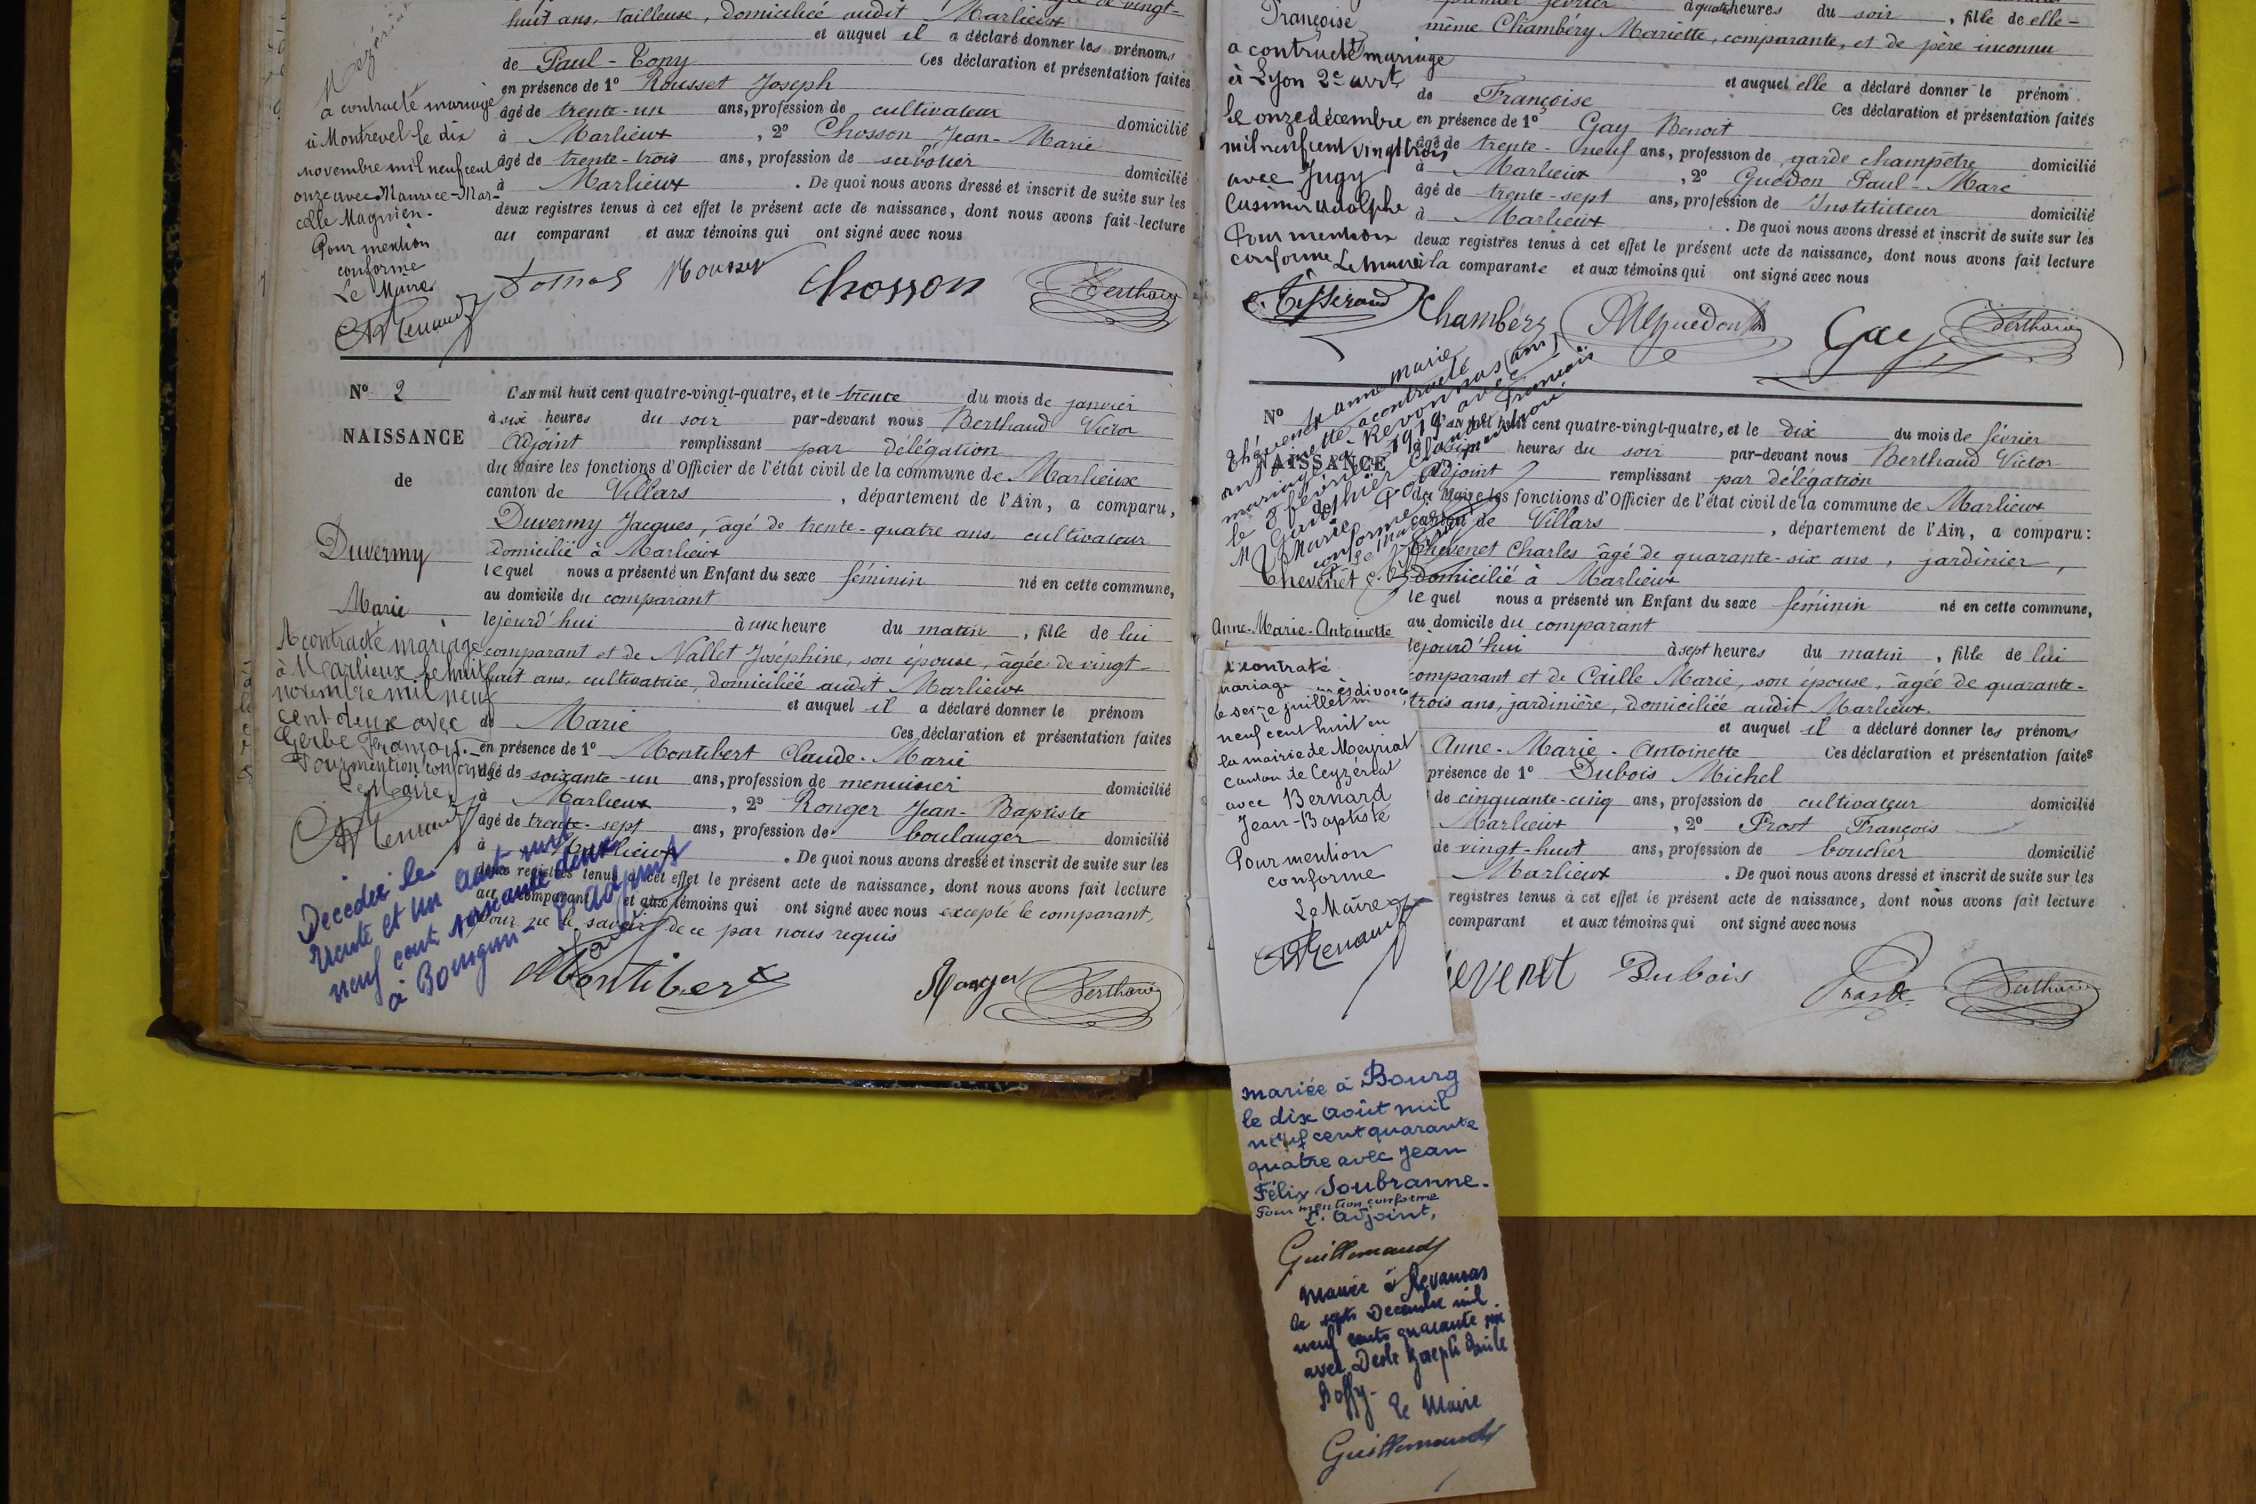 huit ans, tailleuse, domiciliée audit Marlieux
et auquel il a déclaré donner les prénoms
de Paul-Tony Ces déclaration et présentation faites
en présence de 1º Rousset Joseph
âgé de trente-un ans, profession de cultivateur domicilié
à Marlieux, 2º Chosson Jean-Marie
âgé de trente-trois ans, profession de sabotier domicilié
à Marlieux. De quoi nous avons dressé et inscrit de suite sur les
deux registres tenus à cet effet le présent acte de naissance, dont nous avons fait lecture
au comparant et aux témoins qui ont signé avec nous
a contracté mariage
à Montrevel le dix
novembre mil neuf cent
onze avec Maurice-Mar-
celle Magnien.
Pour mention
conforme
Le Maire
Chosson Berthaud
Nº 2
NAISSANCE
de
Duvermy
Marie
A contracté mariage
à Marlieux le huit
novembre mil neuf
cent deux avec
Gerbe François.
Pour mention conforme
Le Maire,
Décédée le
trente et un août mil
neuf cent soixante deux
à Bourgoin
L'an mil huit cent quatre-vingt-quatre, et le trente du mois de janvier
à six heures du soir par-devant nous Berthaud Victor
Adjoint remplissant par délégation
du Maire les fonctions d'Officier de l'état civil de la commune de Marlieux
canton de Villars, département de l'Ain, a comparu,
Duvermy Jacques, âgé de trente-quatre ans, cultivateur
domicilié à Marlieux
lequel nous a présenté un Enfant du sexe féminin né en cette commune,
au domicile du comparant
lejourd'hui à une heure du matin, fille de lui
comparant et de Nallet Joséphine, son épouse, âgée de vingt-
huit ans, cultivatrice, domiciliée audit Marlieux
et auquel il a déclaré donner le prénom
de Marie Ces déclaration et présentation faites
en présence de 1º Montibert Claude-Marie
âgé de soixante-un ans, profession de menuisier domicilié
à Marlieux, 2º Ronger Jean-Baptiste
âgé de trente-sept ans, profession de boulanger domicilié
à Marlieux. De quoi nous avons dressé et inscrit de suite sur les
deux registres tenus à cet effet le présent acte de naissance, dont nous avons fait lecture
au comparant et aux témoins qui ont signé avec nous excepté le comparant,
pour ne le savoir de ce par nous requis
Montibert Ronger Berthaud
Françoise
a contracté mariage
à Lyon 2e arrt
le onze décembre
mil neuf cent vingt trois
avec Jugy
Casimir Adolphe
Pour mention
conforme Le Maire
C. Tisserand
à quatre heures du soir, fille de elle-
même Chambéry Mariette, comparante, et de père inconnu
et auquel elle a déclaré donner le prénom
de Françoise Ces déclaration et présentation faites
en présence de 1º Gay Benoit
âgé de trente-neuf ans, profession de garde champêtre domicilié
à Marlieux, 2º Guédon Paul-Marc
âgé de trente-sept ans, profession de Instituteur domicilié
à Marlieux. De quoi nous avons dressé et inscrit de suite sur les
deux registres tenus à cet effet le présent acte de naissance, dont nous avons fait lecture
à la comparante et aux témoins qui ont signé avec nous
Chambéry Guédon Gay Berthaud
Nº
NAISSANCE
Thévenet Anne Marie
Antoinette a contracté
mariage à Revonnas (Ain)
Thevenet
Anne-Marie-Antoinette
L'an mil huit cent quatre-vingt-quatre, et le dix du mois de février
heures du soir par-devant nous Berthaud Victor
Adjoint remplissant par délégation
du Maire les fonctions d'Officier de l'état civil de la commune de Marlieux
canton de Villars, département de l'Ain, a comparu:
Thevenet Charles âgé de quarante-six ans, jardinier,
domicilié à Marlieux
lequel nous a présenté un Enfant du sexe féminin né en cette commune,
au domicile du comparant
lejourd'hui à sept heures du matin, fille de lui
comparant et de Caille Marie, son épouse, âgée de quarante-
trois ans, jardinière, domiciliée audit Marlieux.
et auquel il a déclaré donner les prénoms
Anne-Marie-Antoinette Ces déclaration et présentation faites
présence de 1º Dubois Michel
de cinquante-cinq ans, profession de cultivateur domicilié
Marlieux, 2º Prost François
de vingt-huit ans, profession de boucher domicilié
Marlieux. De quoi nous avons dressé et inscrit de suite sur les
registres tenus à cet effet le présent acte de naissance, dont nous avons fait lecture
comparant et aux témoins qui ont signé avec nous
evenet Dubois Berthaud
a contraté
mariage
le seize juillet mil
neuf cent huit en
la mairie de Meyriat
canton de Ceyzériat
avec Bernard
Jean-Baptiste
Pour mention
conforme
Le Maire
mariée à Bourg
le dix Août mil
neuf cent quarante
quatre avec Jean
Félix Soubranne.
Pour mention conforme
L'adjoint,
Guillemaud
Mariée à Revonnas
le sept Décembre mil
neuf cents quarante six
avec Joseph Emile
Boffy-
Le Maire
Guillemaud